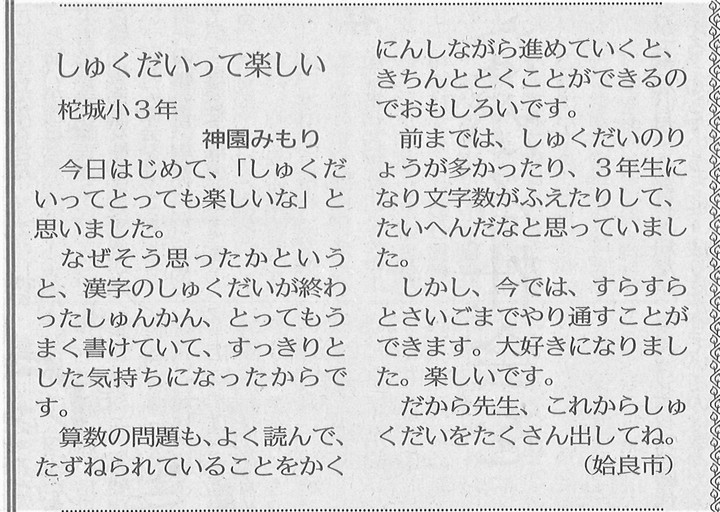 しゅくだいって楽しい
柁城小３年
神園みもり
今日はじめて、「しゅくだ
いってとっても楽しいな」と
思いました。
なぜそう思ったかという
と、漢字のしゅくだいが終わ
ったしゅんかん、とってもう
まく書けていて、すっきりと
した気持ちになったからで
す。
算数の問題も、よく読んで、
たずねられていることをかく
にんしながら進めていくと、
きちんととくことができるの
でおもしろいです。
前までは、しゅくだいのり
ょうが多かったり、３年生に
なり文字数がふえたりして、
たいへんだなと思っていまし
た。
しかし、今では、すらすら
とさいごまでやり通すことが
できます。大好きになりまし
た。楽しいです。
だから先生、これからしゅ
くだいをたくさん出してね。
（姶良市）